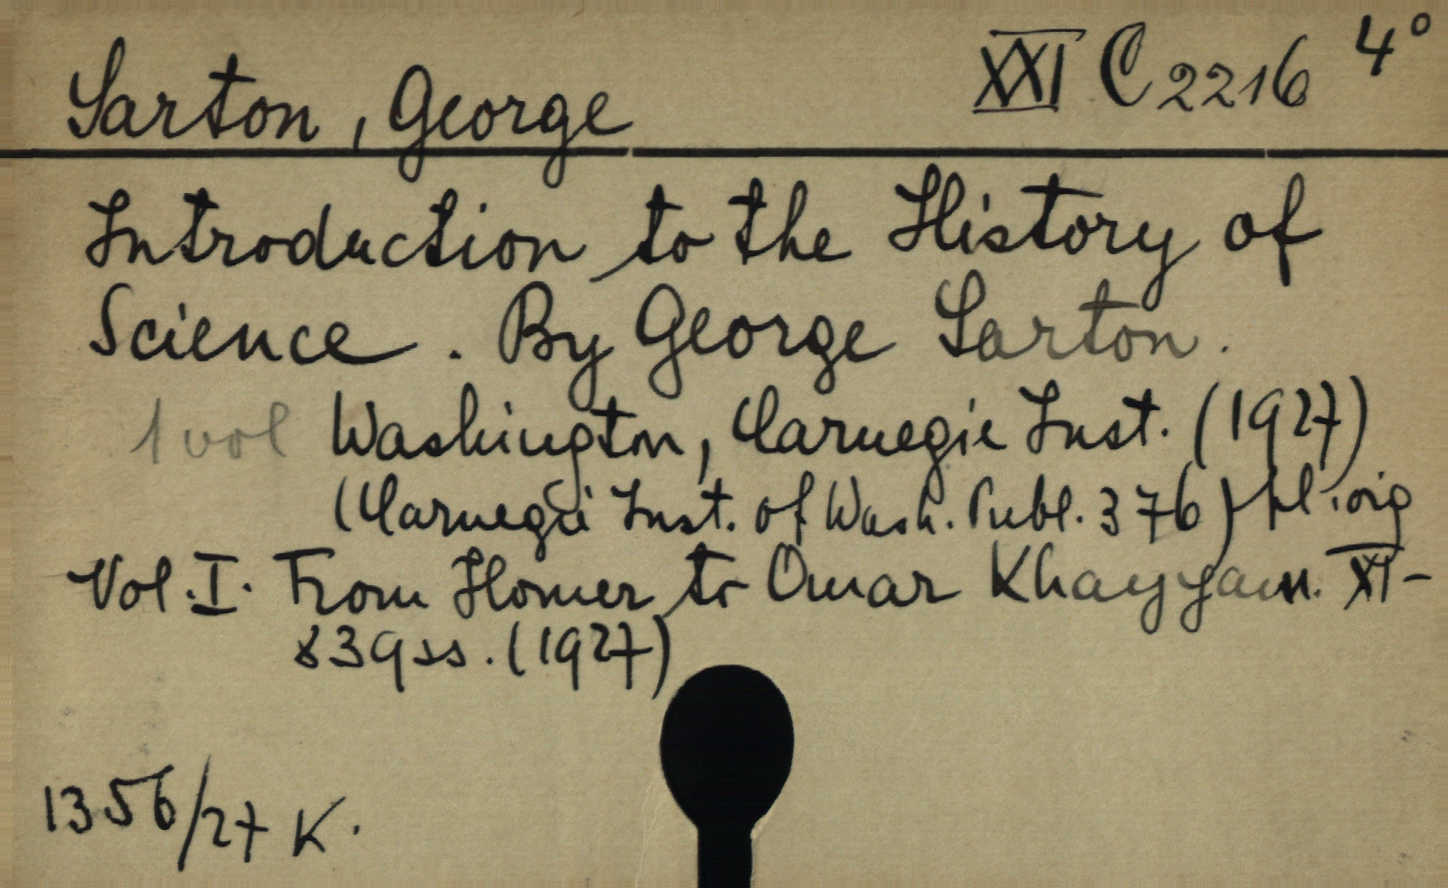 Sarton, George
XXI C 2216 4°
Introduction to the History of
Science. By George Sarton.
1 vol Washington, Carnegie Inst. (1927)
(Carnegie Inst. of Wash. Publ. 376) hl. orig
Vol. I. From Homer to Omar Khayyam. XI-
839 ss. (1927)
1356/27 K.